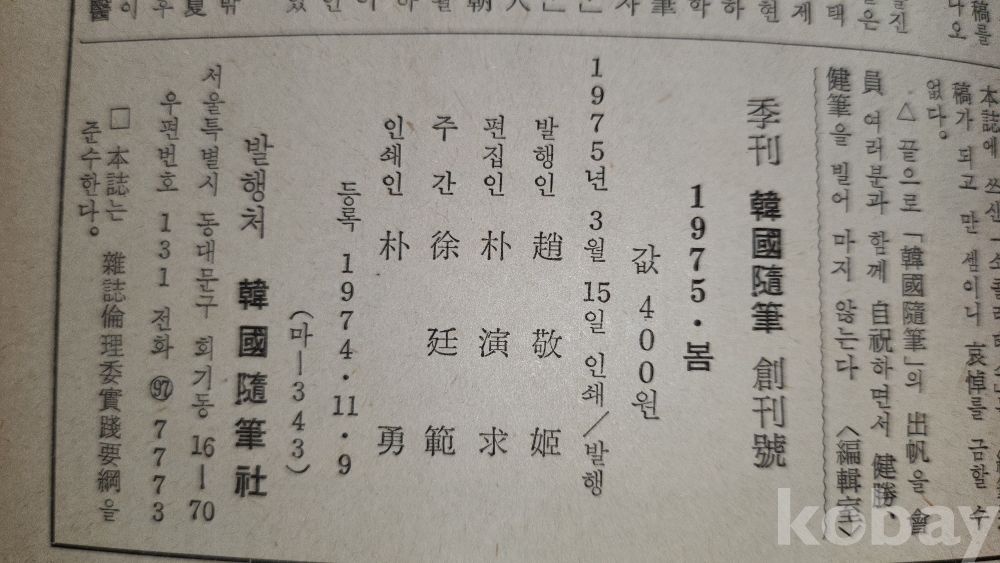 本誌에
稿가 되고 만 셈이니 哀悼를 금할 수
없다。
△ 끝으로 「韓國隨筆」의 出帆을 會
員 여러분과 함께 自祝하면서 健勝、
健筆을 빌어 마지 않는다 〈編輯室〉
季刊 韓國隨筆 創刊號
1975・봄
값 400원
1975년 3월 15일 인쇄/발행
발행인 趙敬姬
편집인 朴演求
주간 徐廷範
인쇄인 朴勇
등록 1974・11・9
(마―343)
발행처 韓國隨筆社
서울특별시 동대문구 회기동 16―70
우편번호 131 전화 97 7773
□ 本誌는 雜誌倫理委實踐要綱을
준수한다。
kobay